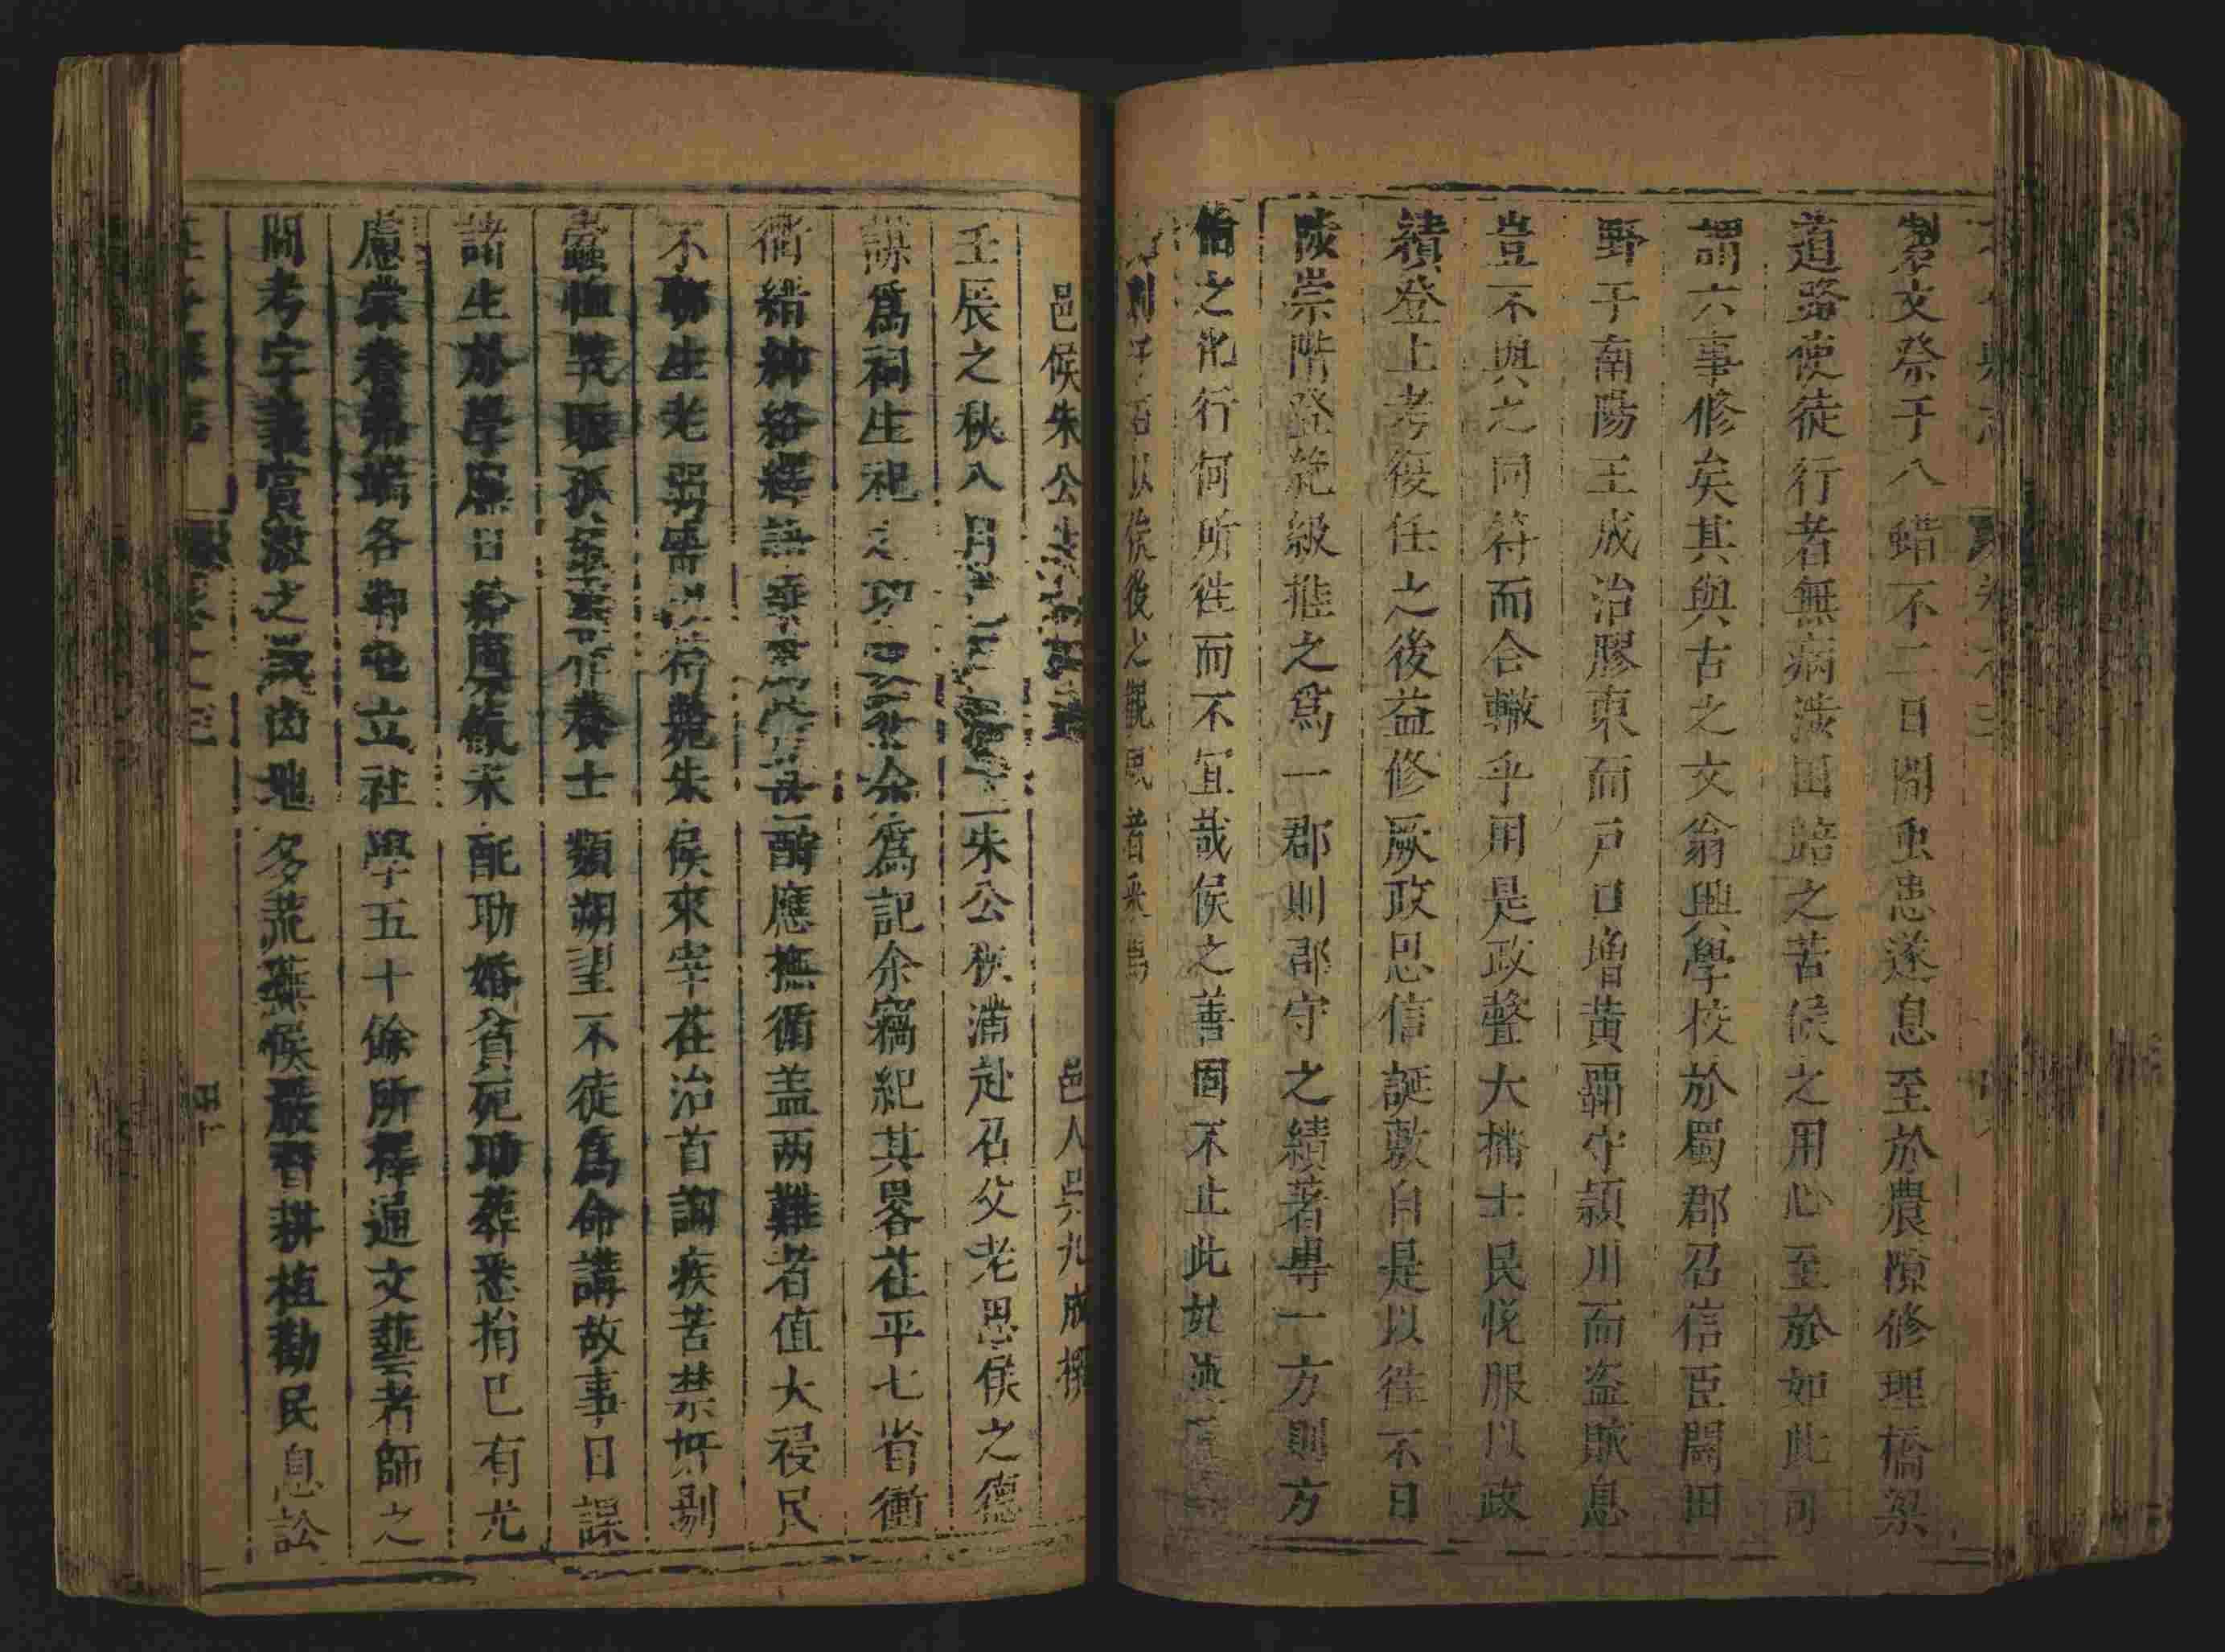 製祭文祭于八蜡不二日間虫患遂息至於農隙修理橋梁
道路使徒行者無病涉田賠之苦侯之用心至於如此可
謂六事修矣其與古之文翁興學校於蜀郡召信臣闢田
野于南陽王成治膠東而戶口增黃霸守潁川而盜賊息
豈不與之同符而合轍乎用是政聲大播士民悅服以政
績登上考復任之後益修厥政恩信誕敷自是以徃不日
陵崇階登穹級推之爲一郡則郡守之績著專一方則方
伯之化行何所徃而不宜哉侯之善固不止此姑
刻于石以俟後之觀風者采焉
邑侯朱公生祠記 邑人吳九成撰
壬辰之秋八月朱公秩滿赴召父老思侯之德
謀爲祠生祀之余爲記余竊紀其畧茌平七省衝
衝縉紳絡繹酧應撫循盖兩難者值大祲民
不聊生老弱朱侯來宰茌治首詢疾苦禁奸剔
蠹恤孤養士類朔望不徒爲命講故事日課
諸生於學宮日給廩餼未配助婚貧死助葬悉捐已有尤
慮蒙養弗端各鄉屯立社學五十餘所擇通文藝者師之
間考字義賞激之茌地多荒蕪侯嚴督耕植勸民息訟